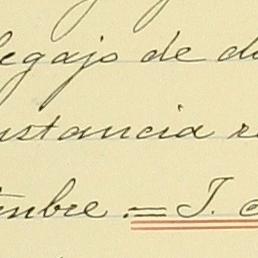 legajo de d
nstancia r
embre.= J.